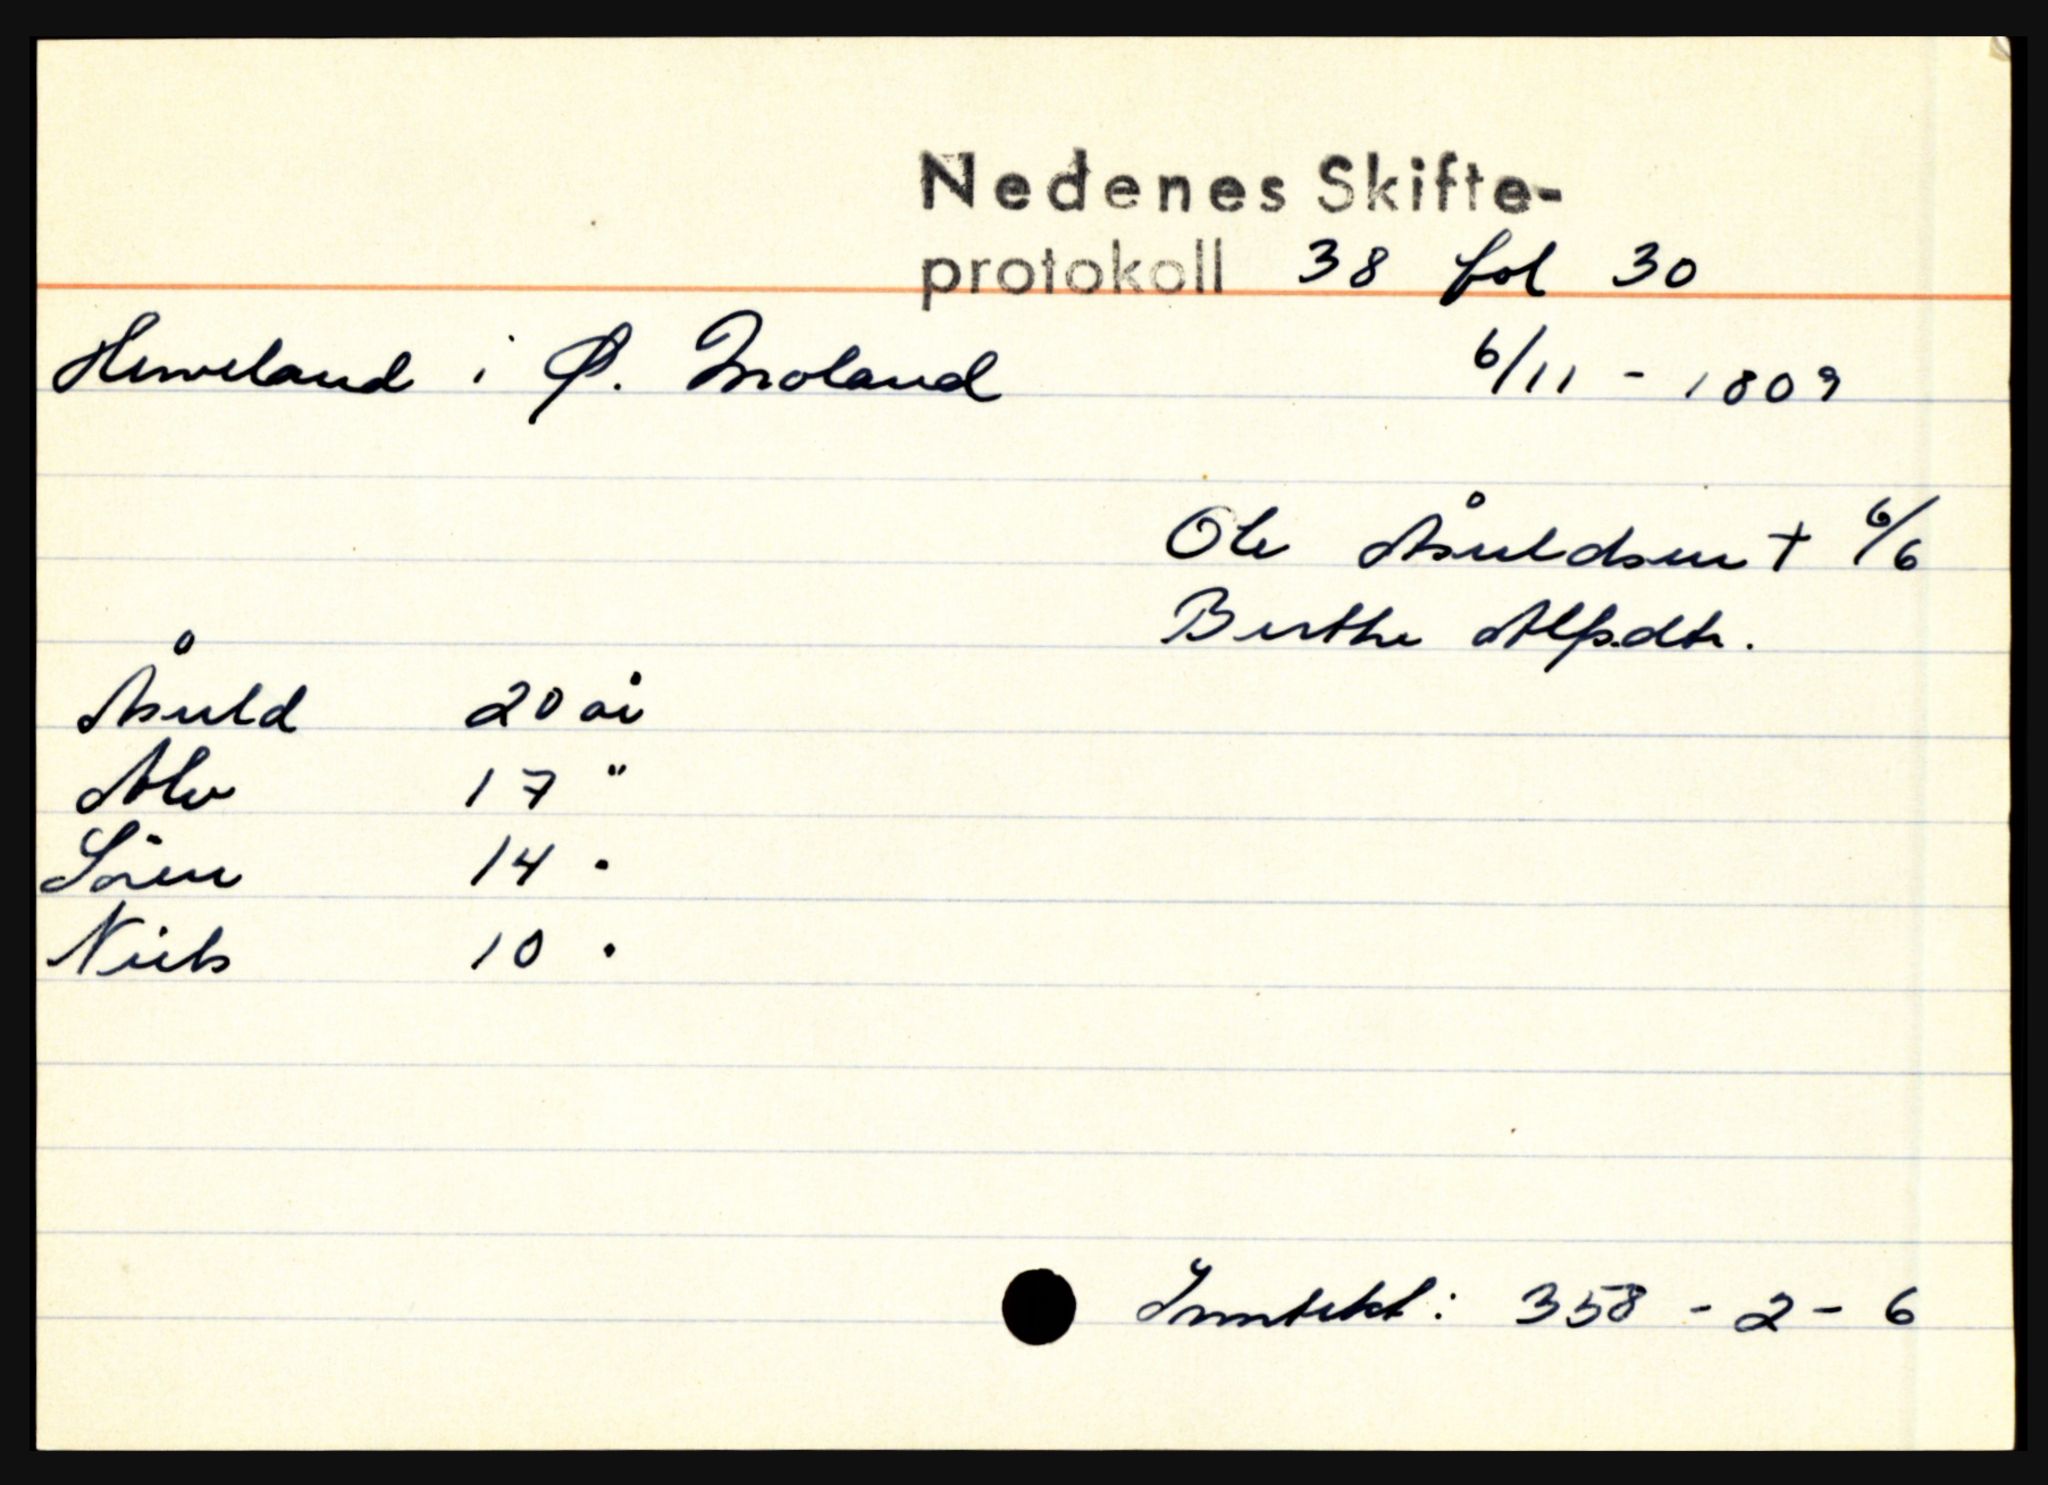 Nedenes Skifte-
protokoll 38 fol 30
Herveland i Ø. Moland 6/11 - 1809
Ole Åsuldsen + 6/6
Berthe Alfsdtr.
Åsuld 20 år
Alv 17 "
Sören 14 "
Niels 10 "
Inntekt: 358 - 2 - 6